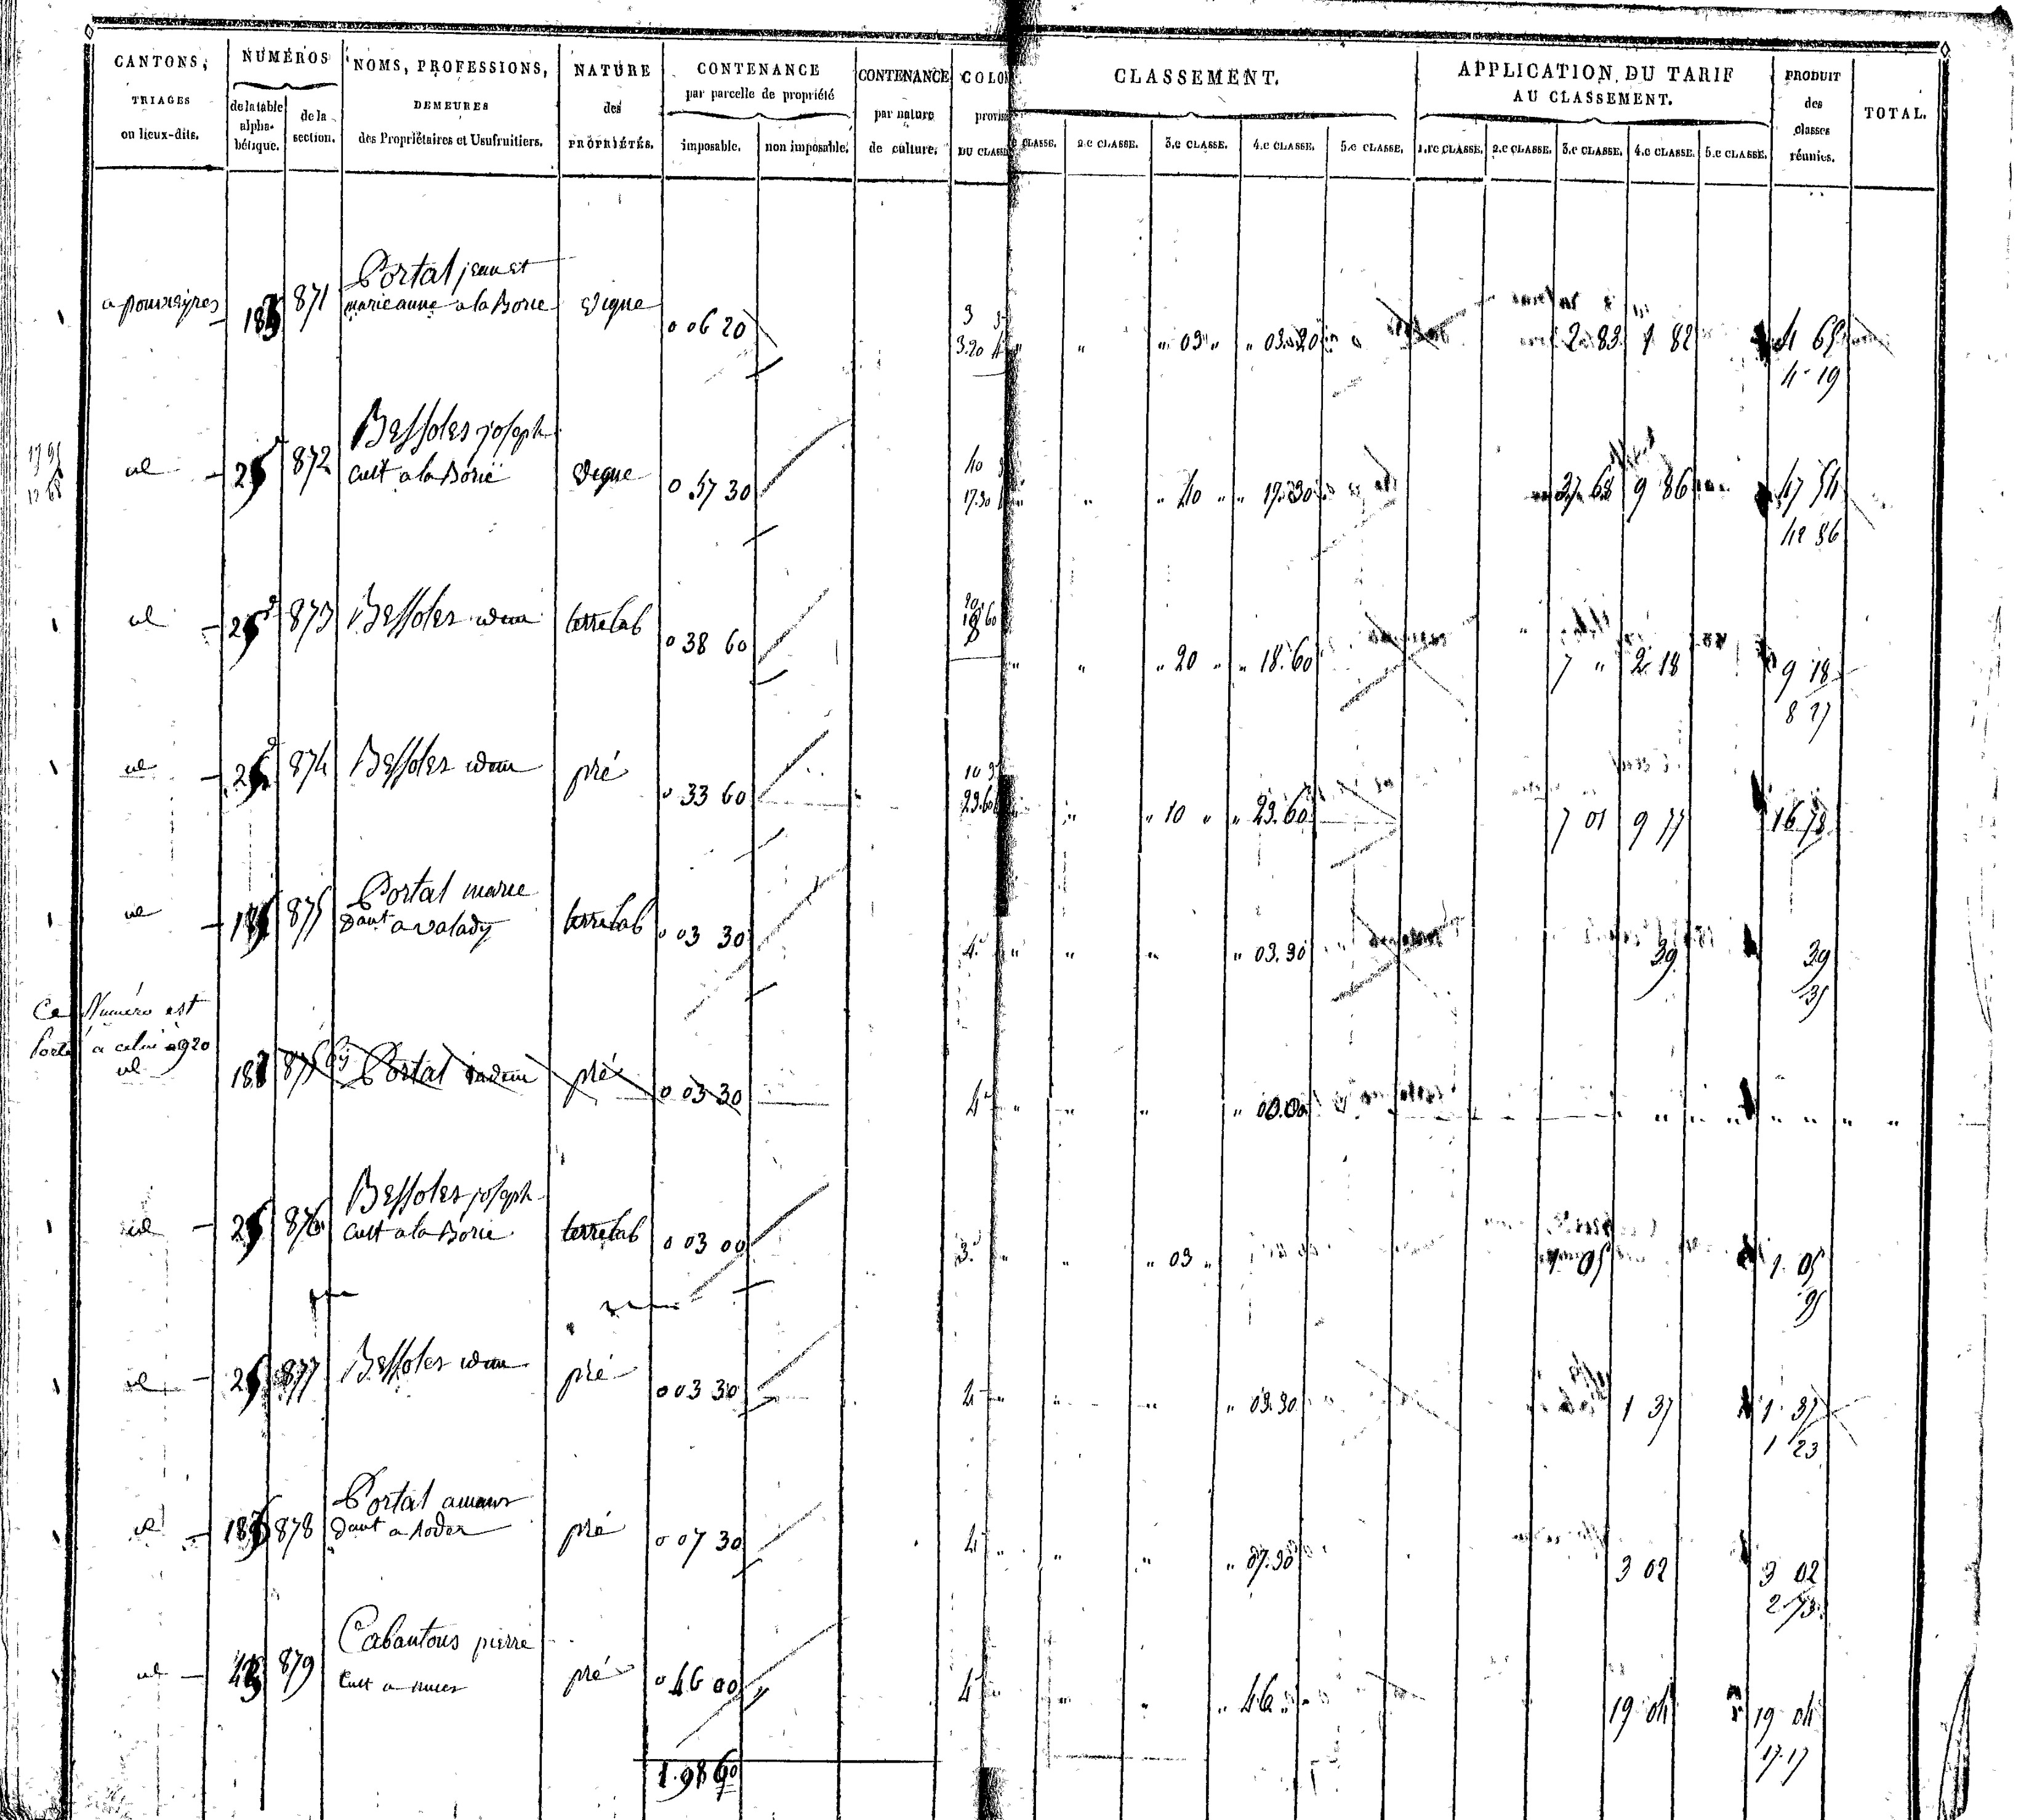 CANTONS, TRIAGES ou lieux-dits. NUMÉROS de la table alpha-bétique. de la section. NOMS, PROFESSIONS, DEMEURES des Propriétaires et Usufruitiers. NATURE des PROPRIÉTÉS. CONTENANCE par parcelle de propriété imposable. non imposable. CONTENANCE par nature de culture. COLON provis DU CLASSE
CLASSEMENT. CLASSE. 2.e CLASSE. 3.e CLASSE. 4.e CLASSE. 5.e CLASSE. APPLICATION DU TARIF AU CLASSEMENT. 1.re CLASSE. 2.e CLASSE. 3.e CLASSE. 4.e CLASSE. 5.e CLASSE. PRODUIT des classes réunies. TOTAL.
Portal jean et
871 marie anne a la Borie vigne 0 06 20 3 3.20 " " 03 " " 03.20 2 83 1 82 4 65
4 19
Bessoles joseph
id 25 872 cult a la Borie vigne 0 57 30 40 17.30 " " 40 " " 17.30 37 68 9 86 47 54
42 86
id 25 873 Bessoles idem terre lab 0 38 60 20 18 60 " " 20 " " 18.60 7 " 2 18 9 18
8 27
id 25 874 Bessoles idem pré 0 33 60 10 23.60 " " 10 " " 23.60 7 01 9 77 16 78
Portal marie
id 875 dant a valady terre lab 0 03 30 4 " " " " 03.30 39 39
35
Ce Numéro est
Porté a celui 920
id 875 bis Portal pré 0 03 30 4 " " "
Bessoles joseph
id 25 876 cult a la Borie terre lab 0 03 00 3 " " " 03 " 1 05 1 05
95
id 25 877 Bessoles idem pré 0 03 30 4 " " " " 03.30 1 37 1 37
1 23
Portal amans
id 878 dant a Rodez pré 0 07 30 4 " " " " 07.30 3 02 3 02
2 73
Cabantous pierre
id 879 cult a nuces pré 0 46 00 4 " " " " 46 " 19 04 19 04
17.17
1.98 60